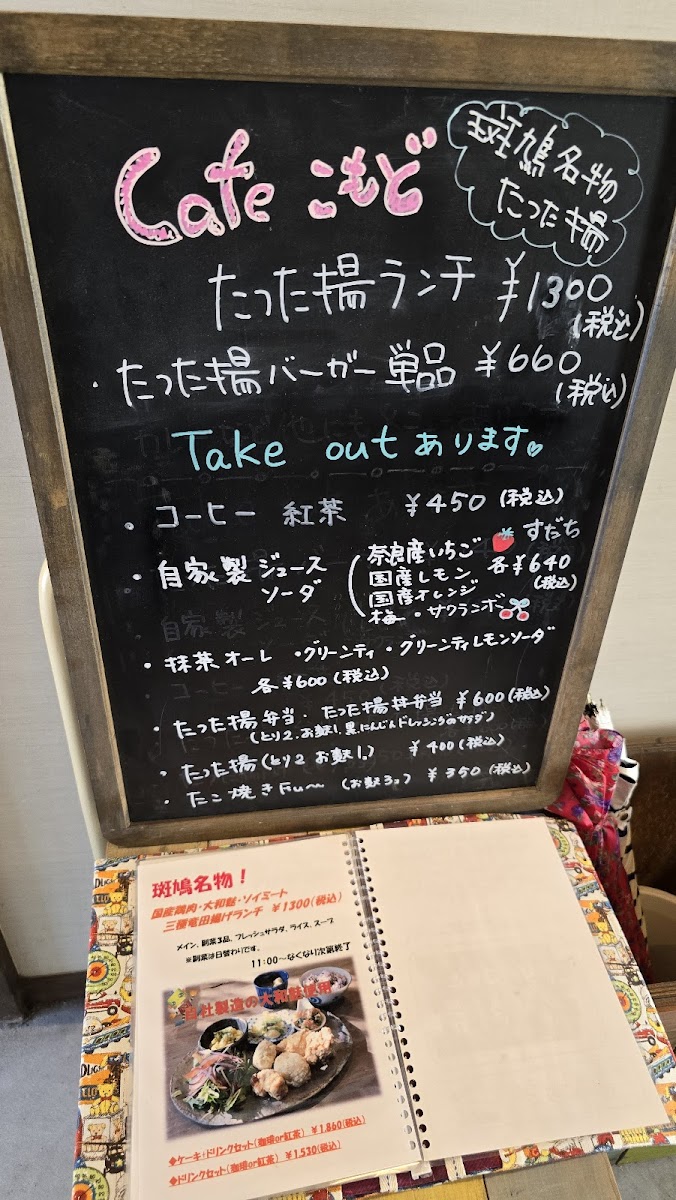 Cafe こもど
斑鳩名物
たった揚
たった揚ランチ ¥1300
(税込)
・たった揚バーガー単品 ¥660
(税込)
Take outあります
・コーヒー 紅茶 ¥450(税込)
・自家製ジュース
ソーダ
奈良産いちご
国産レモン
国産オレンジ
梅・サクランボ
すだち
各¥640
(税込)
・抹茶オーレ ・グリーンティ ・グリーンティレモンソーダ
各¥600(税込)
・たった揚弁当・たった揚丼弁当 ¥600(税込)
(とり2.お麩1.
ドレッシングのサラダ)
・たった揚(とり2 お麩1.) ¥400(税込)
・たこ焼き (お麩3コ) ¥350(税込)
斑鳩名物!
国産鶏肉・大和麩・ソイミート
三種竜田揚げランチ ¥1300(税込)
メイン、副菜3品、フレッシュサラダ、ライス、スープ
※副菜は日替わりです。
11:00~なくなり次第終了
自社製造の大和麩使用
◆ケーキ・ドリンクセット(珈琲or紅茶) ¥1,860(税込)
◆ドリンクセット(珈琲or紅茶) ¥1,530(税込)